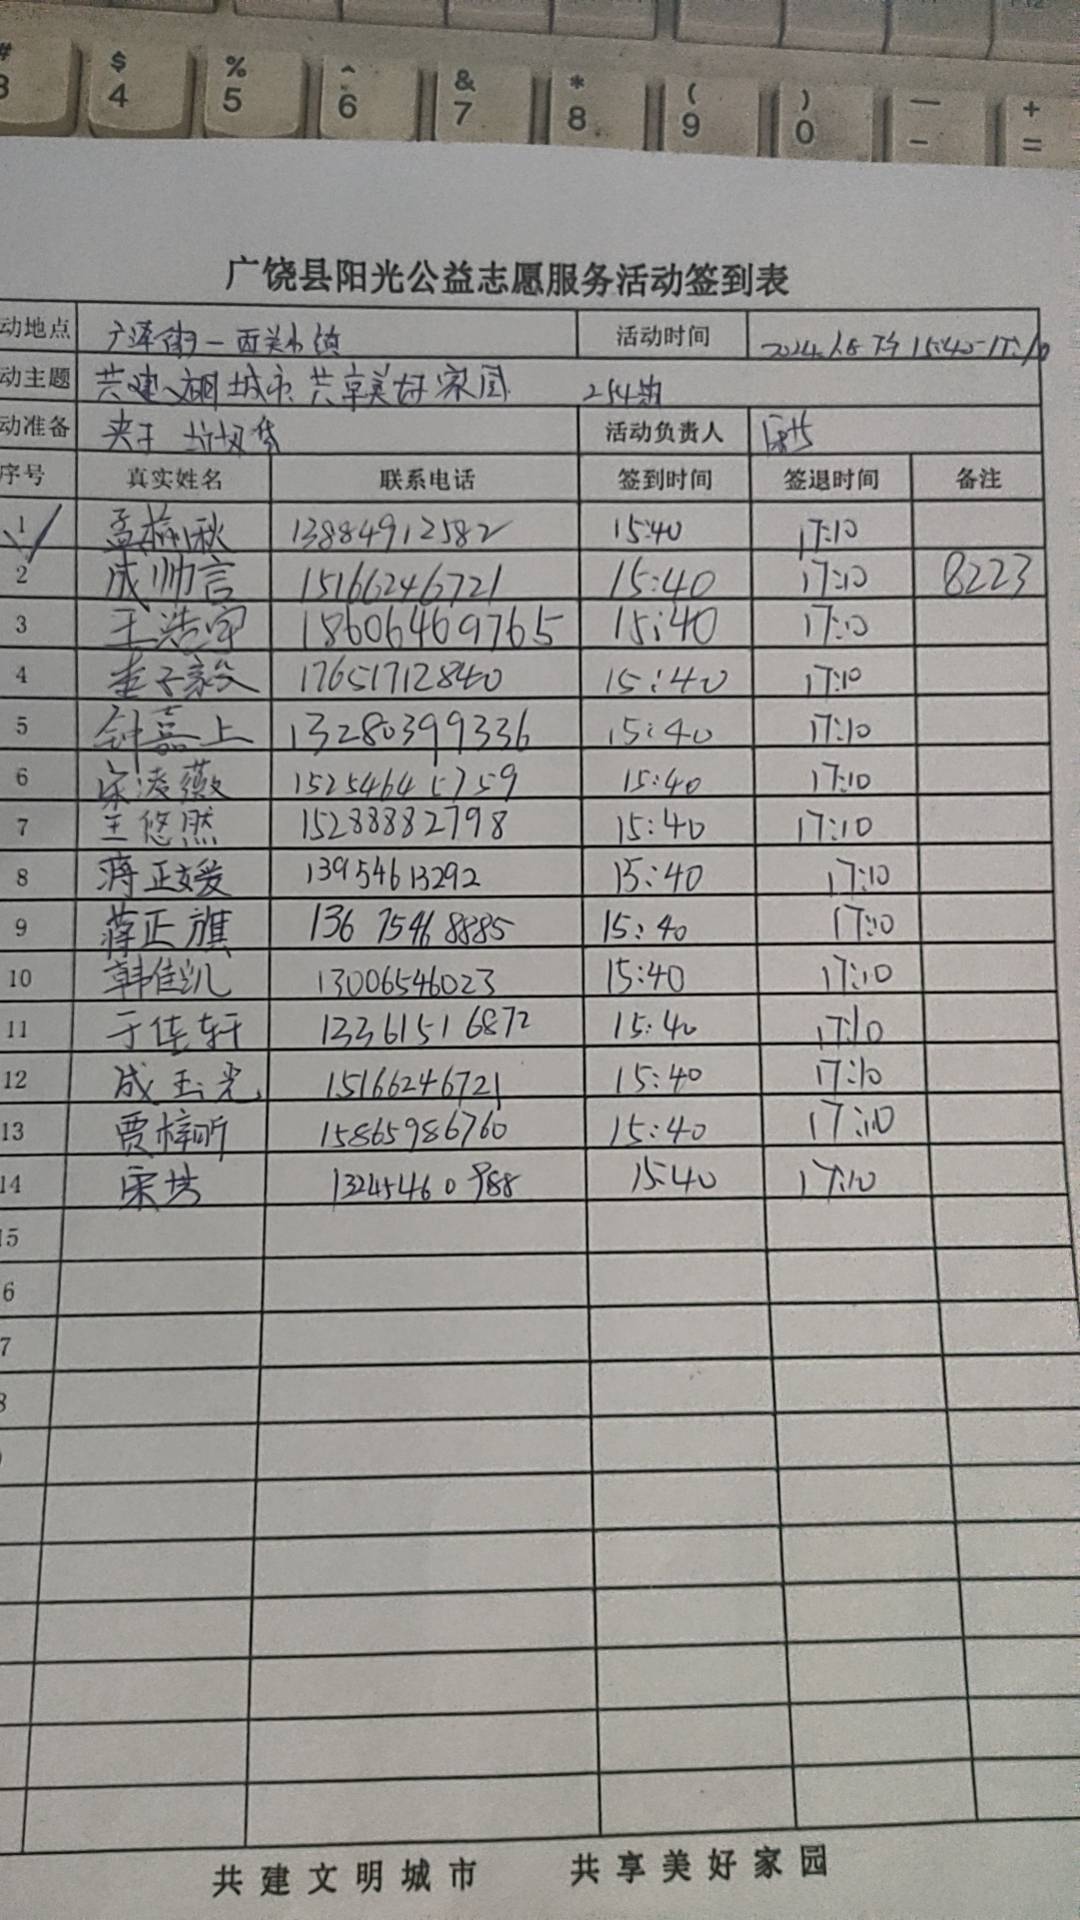 # $ % ^ & * ( ) — +
3 4 5 6 7 8 9 0 - =
广饶县阳光公益志愿服务活动签到表
动地点 广泽街一西关小镇 活动时间 15:40-17:10
动主题 共建文明城市共享美好家园 254期
动准备 夹子 垃圾袋 活动负责人
序号 真实姓名 联系电话 签到时间 签退时间 备注
1 孟楠秋 13884912582 15:40 17:10
2 成帅言 15166246721 15:40 17:10 8223
3 王浩宇 18606469765 15:40 17:10
4 董子毅 17651712840 15:40 17:10
5 钟嘉上 13280399336 15:40 17:10
6 宋凌薇 15254645759 15:40 17:10
7 王悠然 15288882798 15:40 17:10
8 蒋正媛 13954613292 15:40 17:10
9 蒋正旗 136 7546 8885 15:40 17:10
10 韩佳凯 13006546023 15:40 17:10
11 于佳轩 13361516872 15:40 17:10
12 成玉光 15166246721 15:40 17:10
13 贾梓昕 15865986760 15:40 17:10
14 宋 13245460988 15:40 17:10
15
6
7
8
共建文明城市 共享美好家园